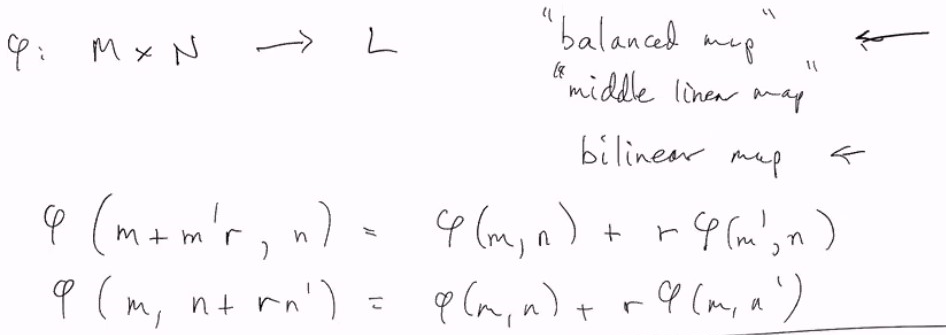 φ: M × N → L "balanced map" ←
"middle linear map"
bilinear map ←
φ(m + m'r, n) = φ(m, n) + r φ(m', n)
φ(m, n + rn') = φ(m, n) + r φ(m, n')